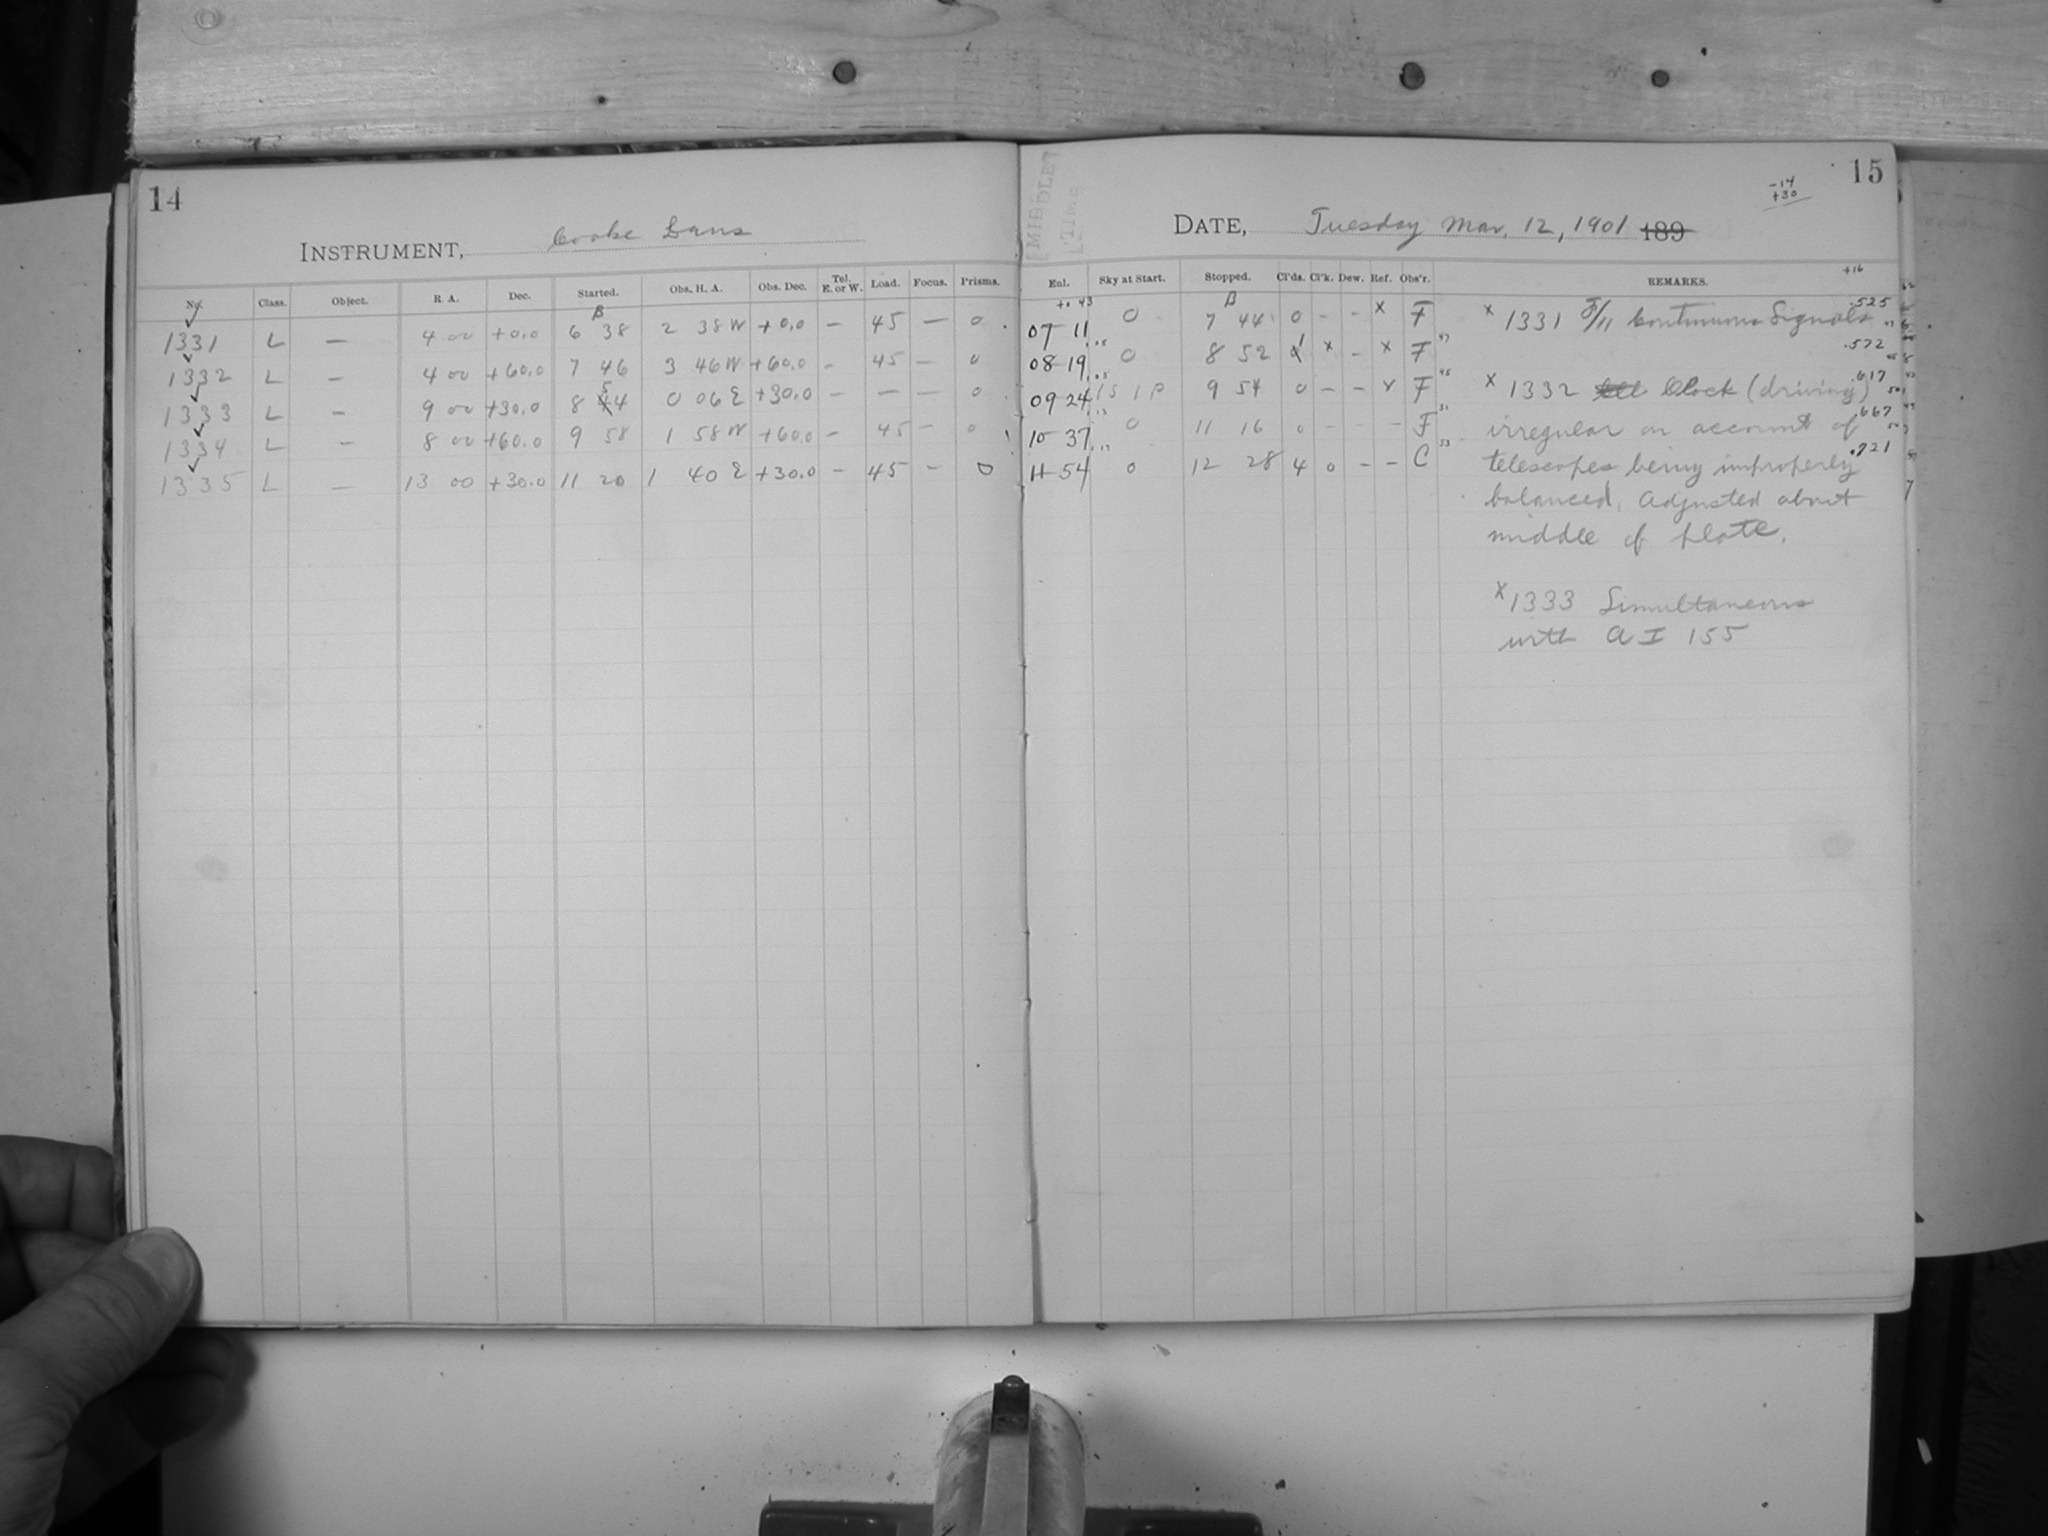 14
INSTRUMENT, Cooke Lens
No. Class. Object. R. A. Dec. Started. Obs. H. A. Obs. Dec. Tel. E. or W. Load. Focus. Prisms.
1331 L — 4 00 +0.0 6 38 2 38 W +0.0 — 45 — 0
1332 L — 4 00 +60.0 7 46 3 46 W +60.0 - 45 — 0
1333 L — 9 00 +30.0 8 54 0 06 E +30.0 — — — 0
1334 L — 8 00 +60.0 9 58 1 58 W +60.0 — 45 — 0
1335 L — 13 00 +30.0 11 20 1 40 E +30.0 — 45 — 0
15
-14
+30
MIDDLE OF
TIME
DATE, Tuesday Mar. 12, 1901 189
+16
Enl. Sky at Start. Stopped. Cl'ds. Cl'k. Dew. Ref. Obs'r. REMARKS.
07 11 0 7 44 0 - - x F
08 19 0 8 52 1 x - x F
09 24 1S 1P 9 54 0 - - x F
10 37 0 11 16 0 - - - F
11 54 0 12 28 4 0 - - C
x 1331 F/11 Continuous Signals .525
.572
x 1332 Clock (driving) .617
irregular on account of .667
telescopes being improperly .721
balanced. Adjusted about
middle of plate.
x 1333 Simultaneous
with A I 155